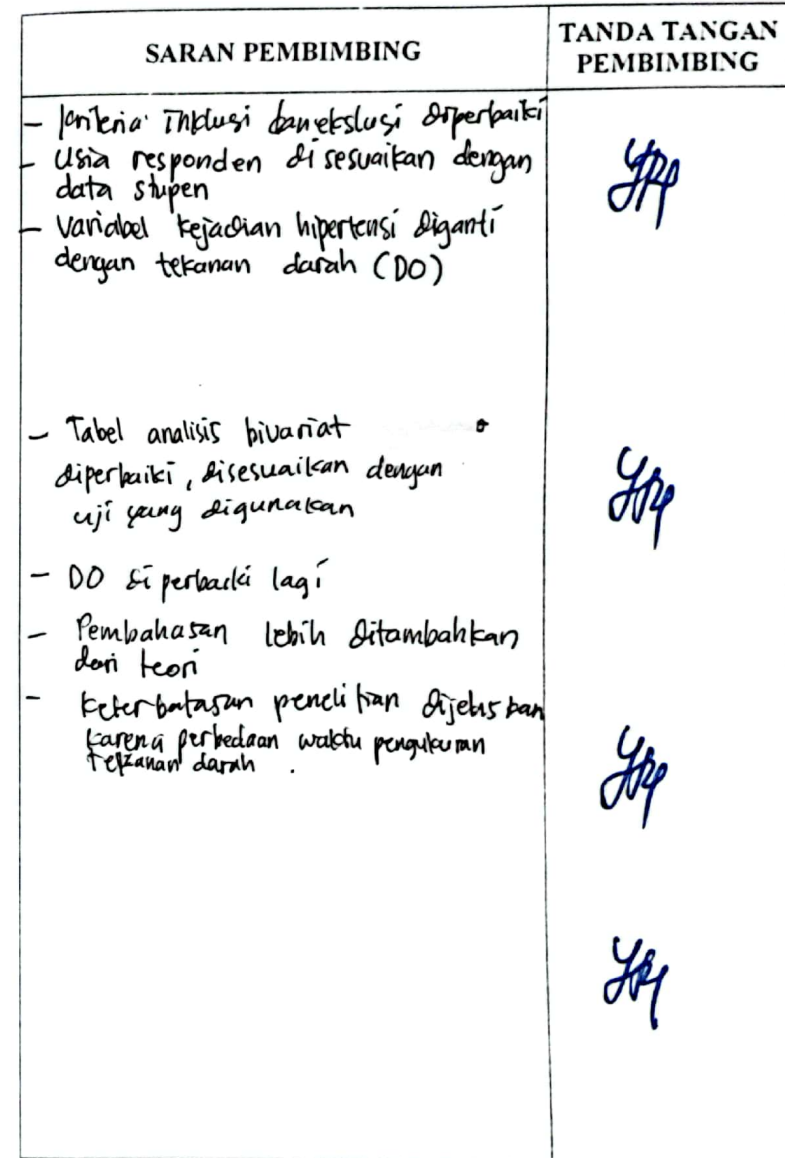 SARAN PEMBIMBING
TANDA TANGAN
PEMBIMBING
- Kriteria Inklusi dan ekslusi diperbaiki
- Usia responden disesuaikan dengan
data stupen
- Variabel kejadian hipertensi diganti
dengan tekanan darah (DO)
- Tabel analisis bivariat
diperbaiki, disesuaikan dengan
uji yang digunakan
- DO diperbaiki lagi
- Pembahasan lebih ditambahkan
dari teori
- Keterbatasan penelitian dijelaskan
karena perbedaan waktu pengukuran
tekanan darah.